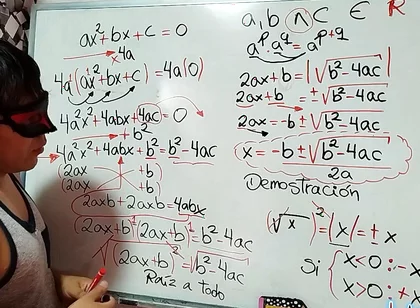 ax² + bx + c = 0
4a
4a(ax² + bx + c) = 4a(0)
4a²x² + 4abx + 4ac = 0
+ b²
4a²x² + 4abx + b² = b² - 4ac
(2ax +b)
(2ax +b)
2axb + 2axb = 4abx
(2ax+b)¹(2ax+b)¹ = b² - 4ac
√(2ax+b)² = √b² - 4ac
Raíz a todo
a, b ∧ c ∈ R
aᵖ · a^q = a^(p+q)
2ax + b = |√b² - 4ac|
2ax + b = ±√b² - 4ac
2ax = -b ± √b² - 4ac
x = -b ± √b² - 4ac
2a
Demostración
(√x)² = |x| = ± x
Si { x < 0 : -x
x > 0 : +x